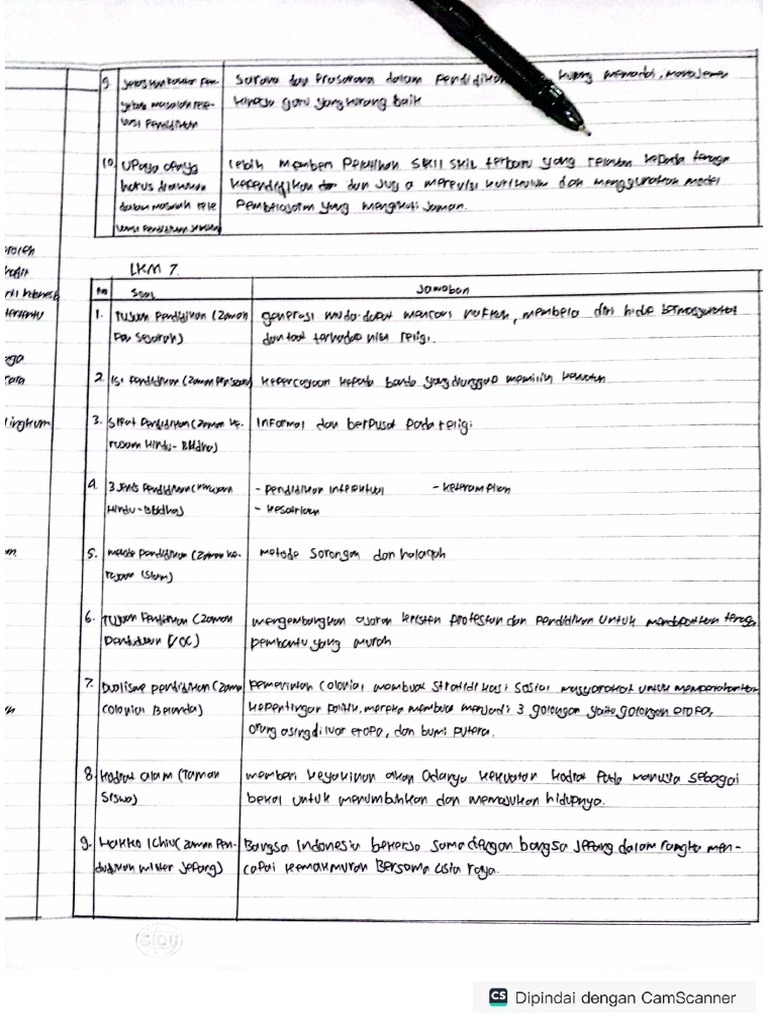 9. Jelaskan faktor Pen-
yebab masalah rele-
vansi Pendidikan
Sarana dan Prasarana dalam Pendidikan kurang memadai, manajemen
kinerja guru yang kurang baik
10. Upaya apa yg
harus dilakukan
dalam masalah rele
vansi Pendidikan
Lebih memberi Pelatihan Skill skil terbaru yang relevan kepada tenaga
kependidikan dan Jug a merevisi kurikulum dan menggunakan model
Pembelajaran yang mengikuti Jaman.
LKM 7.
No Soal Jawaban
1. Tujuan Pendidikan (Zaman
Pra Sejarah)
generasi muda dapat mencari nafkah, membela diri hidup bermasyarakat
dan taat terhadap nilai religi.
2. Isi Pendidikan (Zaman
kepercayaan kepada benda yang dianggap memiliki kekuatan
3. Sifat Pendidikan (Zaman Ke-
rajaan Hindu-Buddha)
Informal dan berpusat pada religi
4. 3 Jenis Pendidikan (
Hindu-Buddha)
- Pendidikan Intelektual - keterampilan
- kesatriaan
5. Metode Pendidikan (Zaman Ke-
rajaan Islam)
metode Sorongan dan halaqoh
6. Tujuan Pendidikan (Zaman
Pendudukan VOC)
mengembangkan ajaran kristen protestan dan pendidikan untuk mendapatkan tenaga
pembantu yang murah
7. Dualisme pendidikan (Zaman
Colonial Belanda)
Pemerintah Colonial membuat stratifikasi sosial masyarakat untuk mempertahankan
kepentingan politik. mereka membuat menjadi 3 golongan yaitu golongan eropa,
Orang asing diluar eropa, dan bumi putera.
8. Kodrat alam (Taman
Siswa)
memberi keyakinan akan adanya kekuatan kodrat pada manusia sebagai
bekal untuk menumbuhkan dan memajukan hidupnya.
9. Hakko Ichiu (Zaman Pen-
dudukan militer Jepang)
Bangsa Indonesia bekerja sama dengan bangsa Jepang dalam rangka men-
capai kemakmuran Bersama Asia raya.
SIDU
CS Dipindai dengan CamScanner